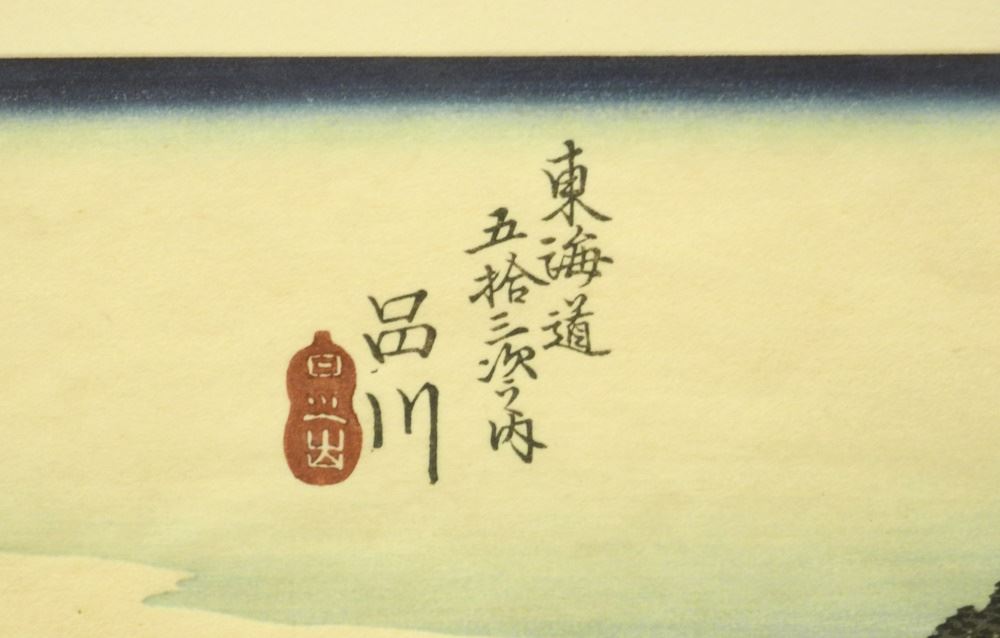 東海道
五拾三次之内
品川
日之出